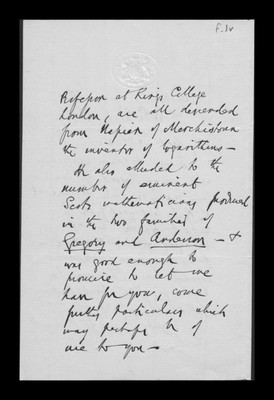 f.1v
Professor at King's College
London, are all descended
from Napier of Merchistoun
the inventor of logarithms –
He also alluded to the
number of eminent
Scots mathematicians produced
in the two families of
Gregory and Anderson – &
was good enough to
promise to let me
have for you, some
further particulars which
may perhaps be of
use to you –